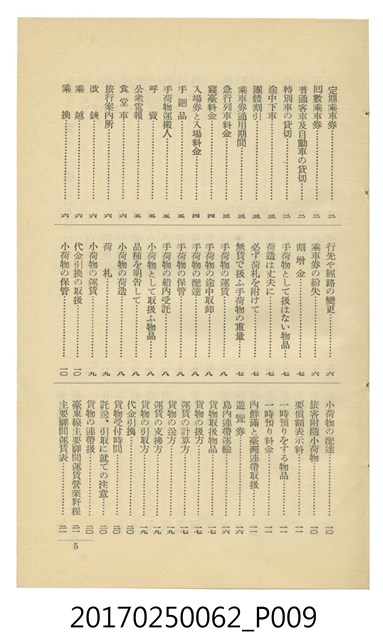 定期乘車券……二
回數乘車券……二
普通客車及自動車の貸切……二
特別車の貸切……二
途中下車……三
團體割引……三
乘車券通用期間……三
急行列車料金……三
寢臺料金……四
入場券と入場料金……四
手廻品……五
手荷物運搬人……五
呼賣……五
公衆電報……五
食堂車……六
旅行案內所……六
改鋏……六
乘越……六
乘換……六
行先や經路の變更……六
乘車券の紛失……六
割增金……七
手荷物として扱はない物品……七
荷造は丈夫に……七
必ず荷札を附けて……七
無賃で扱ふ手荷物の重量……七
手荷物の運賃……八
手荷物の途中取卸……八
手荷物の配達……八
手荷物の保管……八
手荷物の船內受託……八
小荷物として取扱ふ物品……八
品種を明告して……八
小荷物の荷造……八
荷札……九
小荷物の運賃……九
代金引換の取扱……一〇
小荷物の保管……一〇
小荷物の配達……一〇
旅客附隨小荷物……一〇
要償額表示料……一一
一時預りをする物品……一一
一時預り料金……一一
內鮮滿と臺灣連帶取扱……一一
遊覽券……一六
島內連帶運輸……一六
貨物取扱物品……一七
貨物の扱方……一七
運賃の計算方……一七
貨物の送方……一八
運賃の支拂方……一九
貨物の引取方……一九
代金引換……二〇
貨物受付時間……二〇
託送、引取に就ての注意……二〇
貨物の連帶扱……二〇
臺東線主要驛間運賃營業料程……二一
主要驛間運賃表……二一
5
20170250062_P009